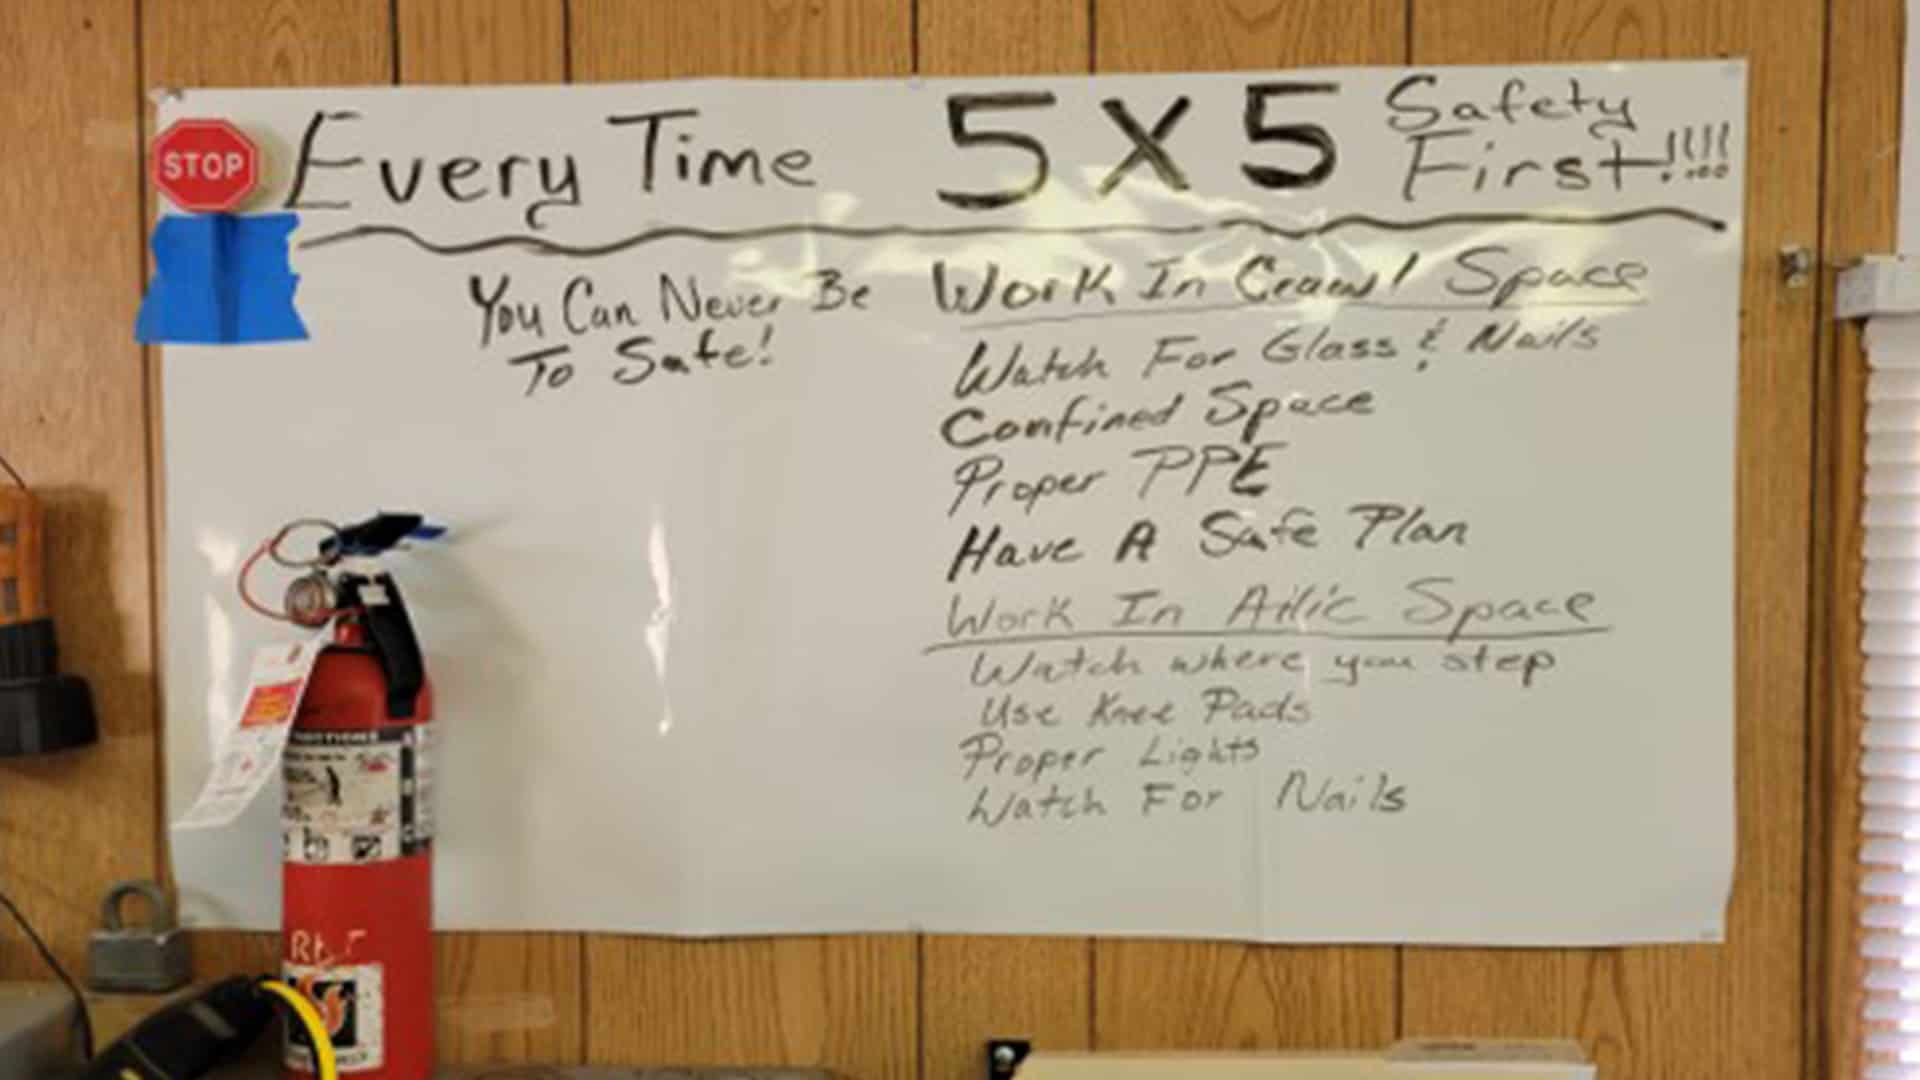 STOP
Every Time 5 X 5 Safety First!!!!
You Can Never Be
To Safe!
Work In Crawl Space
Watch For Glass & Nails
Confined Space
Proper PPE
Have A Safe Plan
Work In Attic Space
Watch where you step
Use Knee Pads
Proper Lights
Watch For Nails